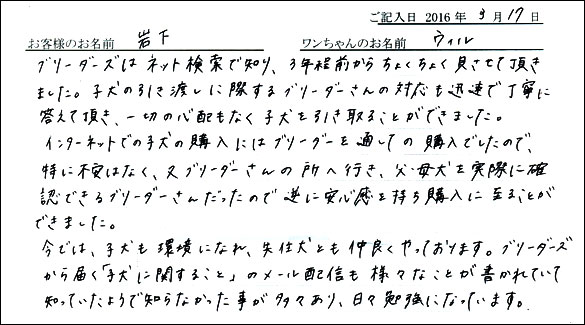 ご記入日 2016 年 3 月 17 日
お客様のお名前 岩下 ワンちゃんのお名前 ウィル
ブリーダーズはネット検索で知り、3年程前からちょくちょく見させて頂き
ました。子犬の引き渡しに際するブリーダーさんの対応も迅速で丁寧に
答えて頂き、一切の心配もなく子犬を引き取ることができました。
インターネットでの子犬の購入にはブリーダーを通しての購入でしたので、
特に不安はなく、又ブリーダーさんの所へ行き、父・母犬を実際に確
認できるブリーダーさんだったので逆に安心感を持ち購入に至ることが
できました。
今では、子犬も環境になれ、先住犬とも仲良くやっております。ブリーダーズ
から届く「子犬に関すること」のメール配信も様々なことが書かれていて
知っていたようで知らなかった事が多々あり、日々勉強になっています。